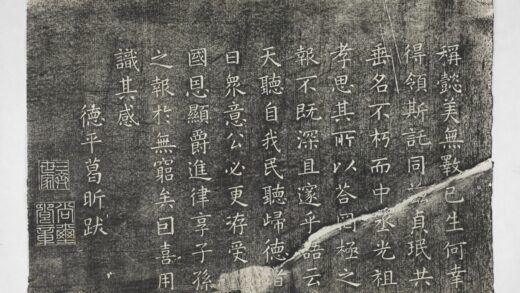 稱懿美無斁已生何幸
得領斯託同於貞珉共
垂名不朽而中丞光祖
孝思其所以答罔極之
報不既深且邃乎語云
天聽自我民聽歸德者
曰眾意公必更洊受
國恩顯爵進律享子孫
之報於無窮矣因喜用
識其感
德平葛昕跋